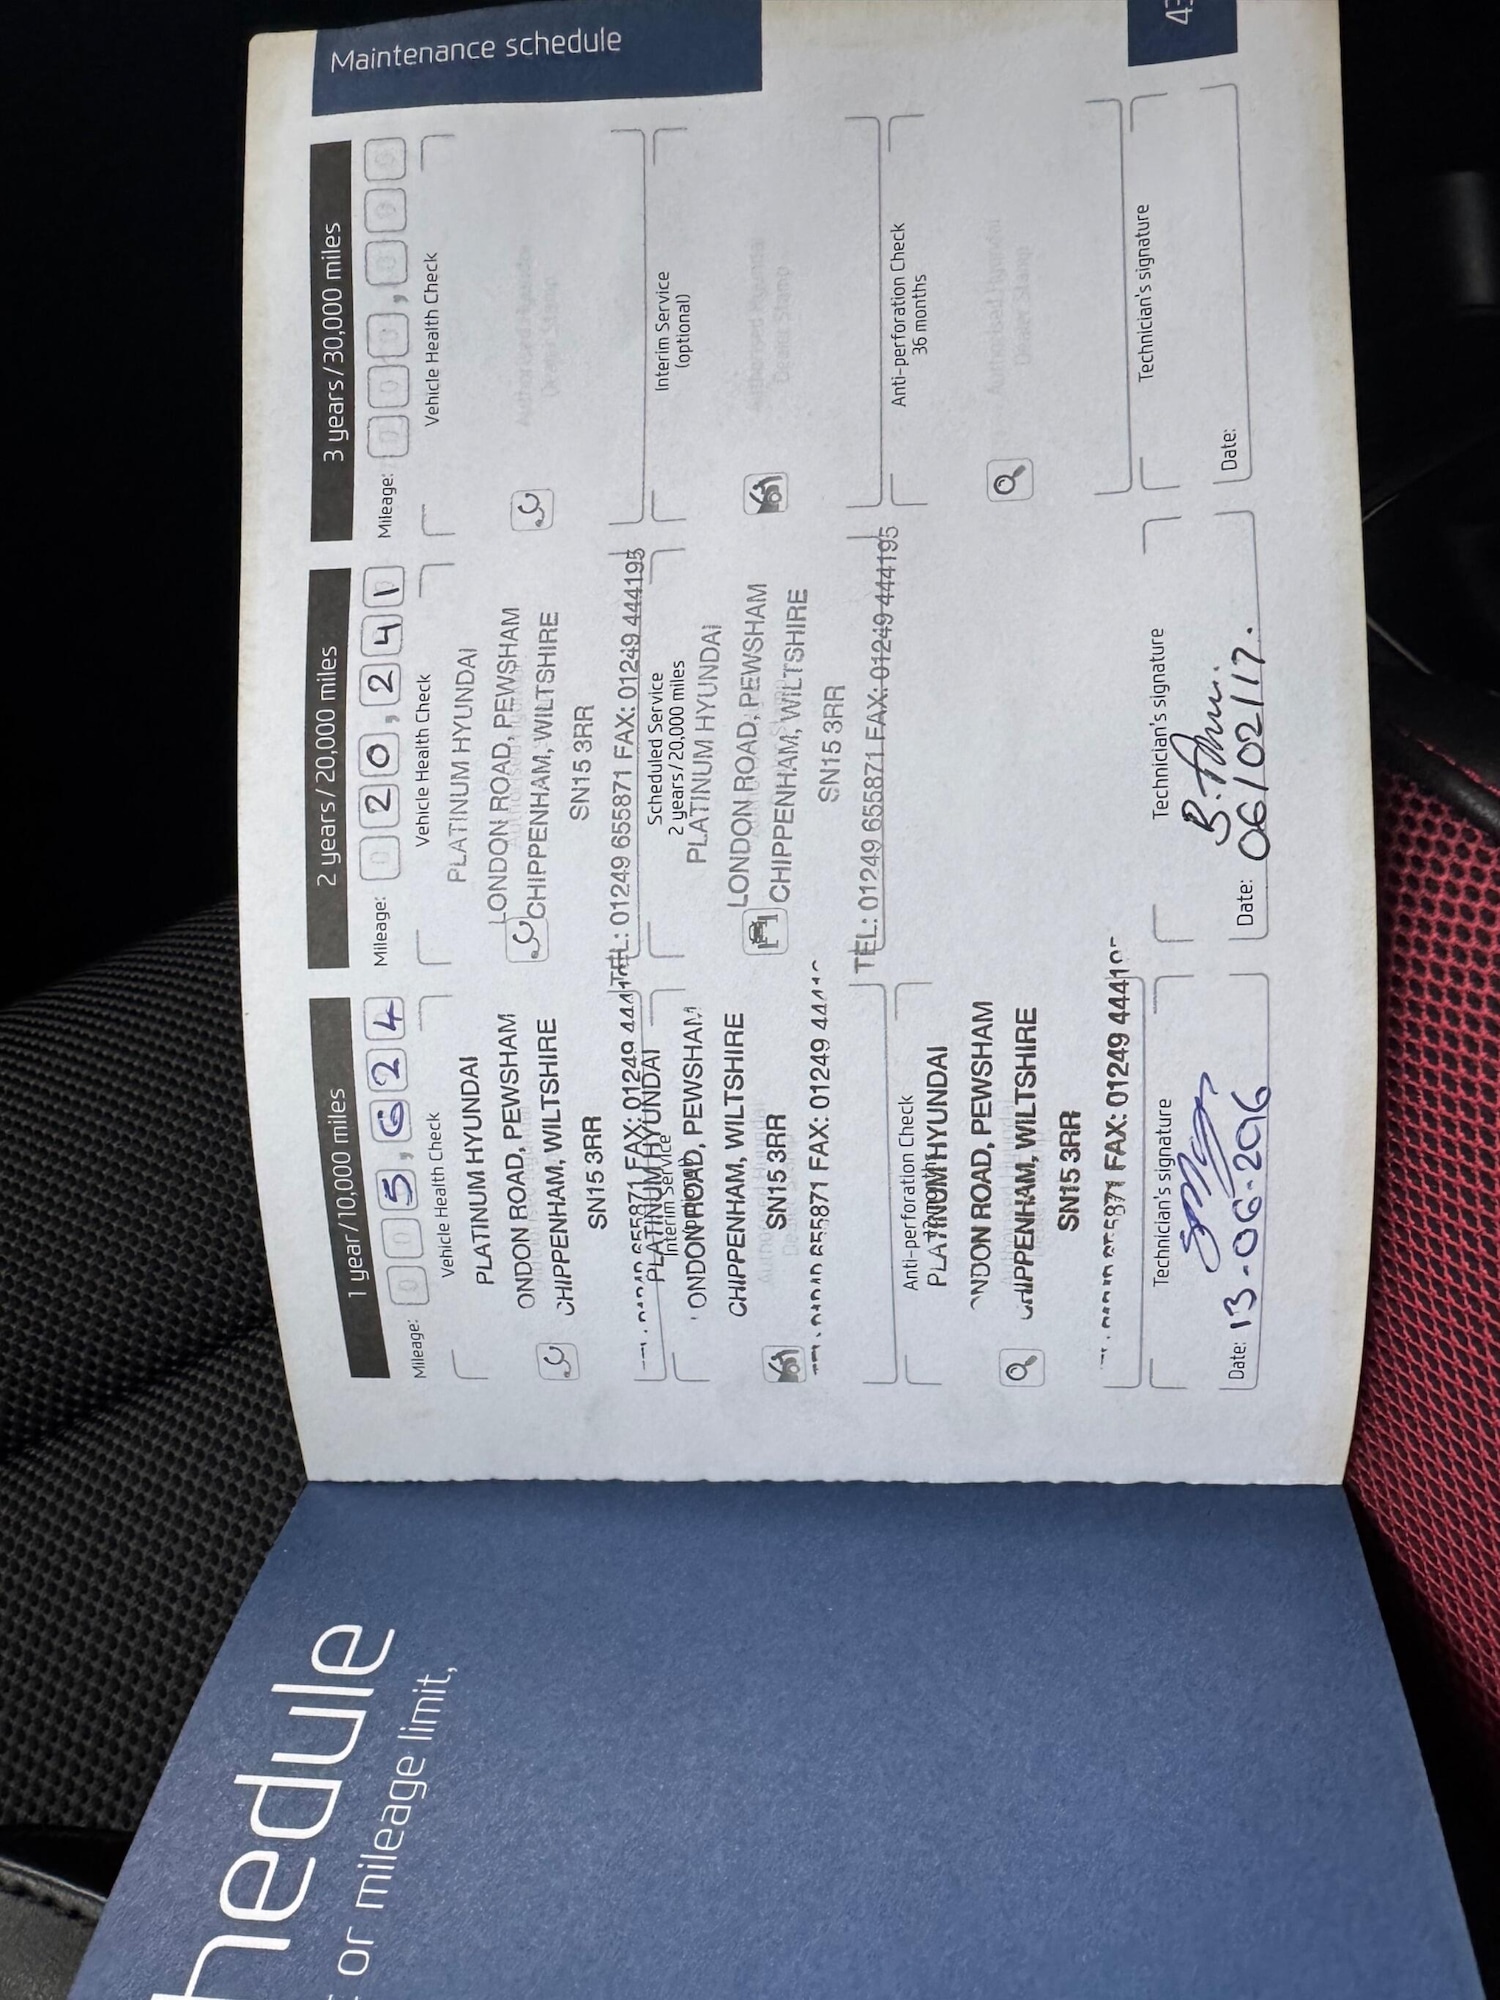 hedule
or mileage limit,
Maintenance schedule
1 year/10,000 miles
Mileage: 0 0 5 , 6 2 4
Vehicle Health Check
PLATINUM HYUNDAI
ONDON ROAD, PEWSHAM
CHIPPENHAM, WILTSHIRE
SN15 3RR
655871 FAX: 01249
Interim Service
PLATINUM HYUNDAI
ONDON ROAD, PEWSHAM
CHIPPENHAM, WILTSHIRE
SN15 3RR
655871 FAX: 01249
Anti-perforation Check
PLATINUM HYUNDAI
ONDON ROAD, PEWSHAM
CHIPPENHAM, WILTSHIRE
SN15 3RR
655871 FAX: 01249
Technician's signature
Date: 13-06-2016
2 years/20,000 miles
Mileage: 0 2 0 , 2 4 1
Vehicle Health Check
PLATINUM HYUNDAI
LONDON ROAD, PEWSHAM
CHIPPENHAM, WILTSHIRE
SN15 3RR
TEL: 01249 655871 FAX: 01249 444195
Scheduled Service
2 years/20,000 miles
PLATINUM HYUNDAI
LONDON ROAD, PEWSHAM
CHIPPENHAM, WILTSHIRE
SN15 3RR
TEL: 01249 655871 FAX: 01249 444195
Technician's signature
Date: 06/02/17.
3 years/30,000 miles
Mileage: 0 0 0 , 0 0 0
Vehicle Health Check
Authorised Hyundai
Dealer Stamp
Interim Service
(optional)
Authorised Hyundai
Dealer Stamp
Anti-perforation Check
36 months
Authorised Hyundai
Dealer Stamp
Technician's signature
Date: